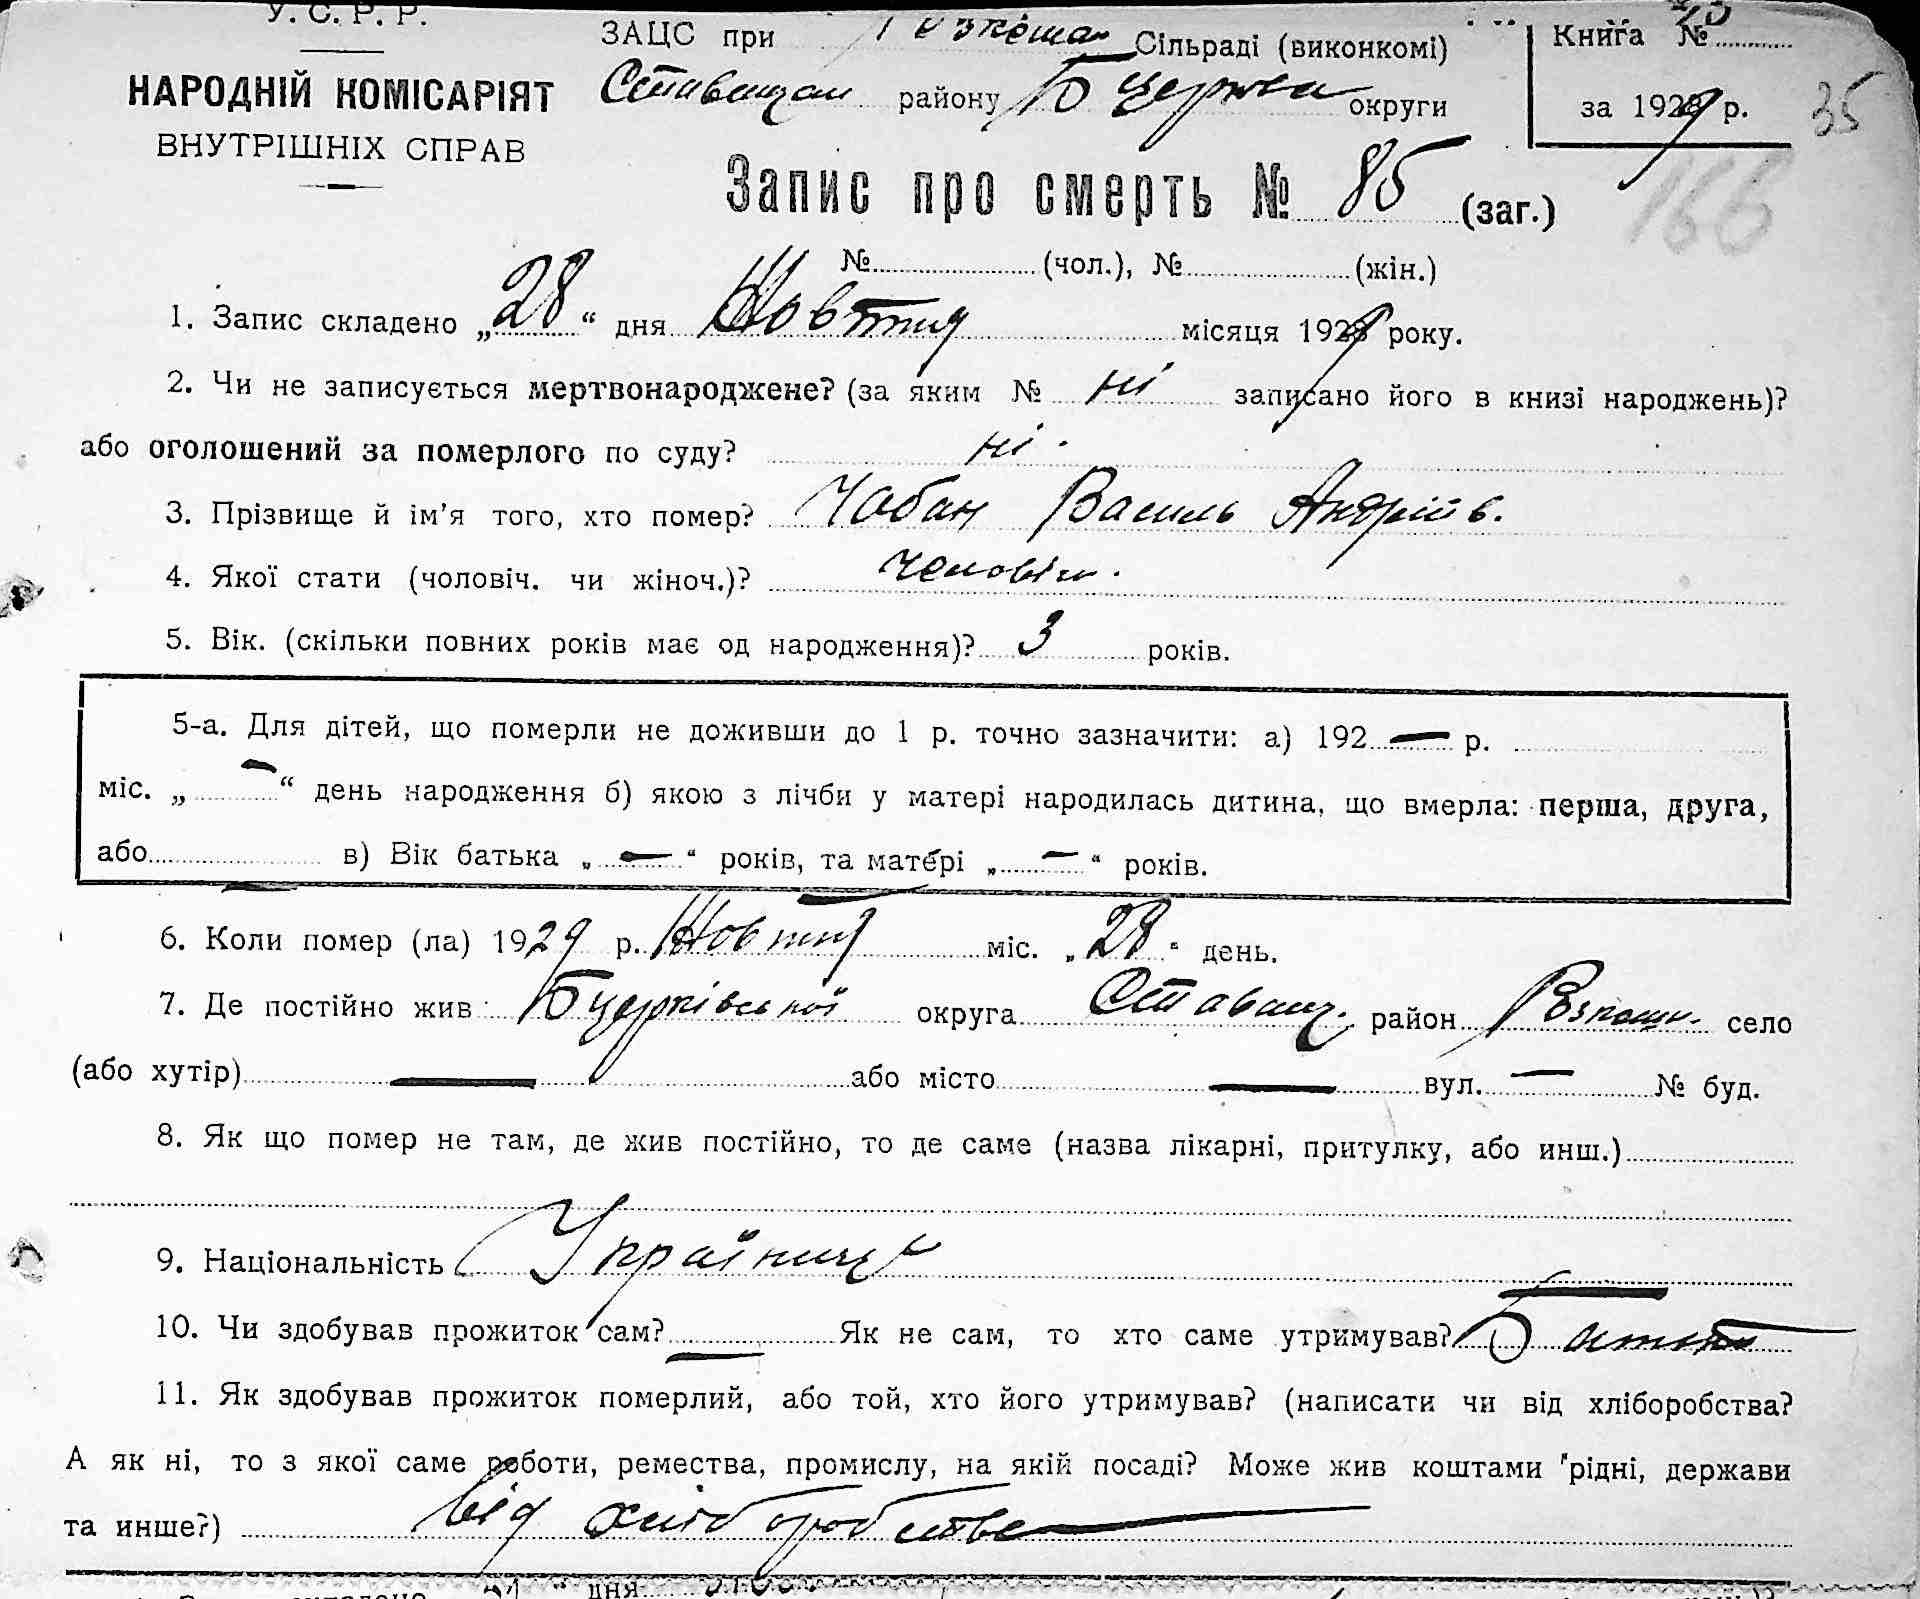 У. С. Р. Р.
ЗАЦС при Розкоша Сільраді (виконкомі)
Книга №
НАРОДНІЙ КОМІСАРІЯТ
Ставищан району Б церкви округи
за 1929 р.
35
ВНУТРІШНІХ СПРАВ
Запис про смерть № 85 (заг.)
166
№ (чол.), № (жін.)
1. Запис складено „28“ дня Жовтня місяця 1929 року.
2. Чи не записується мертвонароджене? (за яким № ні записано його в книзі народжень)?
або оголошений за померлого по суду? ні.
3. Прізвище й ім'я того, хто помер? Чабан Василь Андріїв.
4. Якої стати (чоловіч. чи жіноч.)? чоловіч.
5. Вік. (скільки повних років має од народження)? 3 років.
5-а. Для дітей, що померли не доживши до 1 р. точно зазначити: а) 192 — р.
міс. „ — “ день народження б) якою з лічби у матері народилась дитина, що вмерла: перша, друга,
або — в) Вік батька „ — “ років, та матері „ — “ років.
6. Коли помер (ла) 1929 р. Жовтня міс. „28“ день.
7. Де постійно жив Б церківської округа Ставищ. район Розкоши. село
(або хутір) — або місто — вул. — № буд.
8. Як що помер не там, де жив постійно, то де саме (назва лікарні, притулку, або инш.)
9. Національність Українець
10. Чи здобував прожиток сам? — Як не сам, то хто саме утримував? Батько
11. Як здобував прожиток померлий, або той, хто його утримував? (написати чи від хліборобства?
А як ні, то з якої саме роботи, ремества, промислу, на якій посаді? Може жив коштами рідні, держави
та инше?) від хліборобства